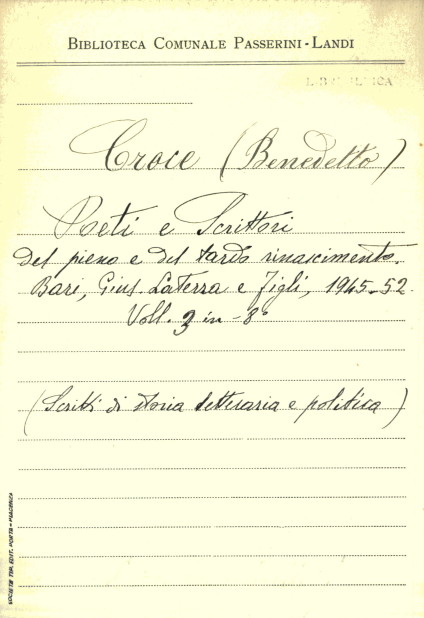 BIBLIOTECA COMUNALE PASSERINI-LANDI
Croce (Benedetto)
Poeti e Scrittori
del pieno e del tardo rinascimento.
Bari, Gius. Laterza e Figli, 1945-52
Voll. 3 in-8°
(Scritti di storia letteraria e politica)
SOCIETÀ TIP. EDIT. PORTA - PIACENZA